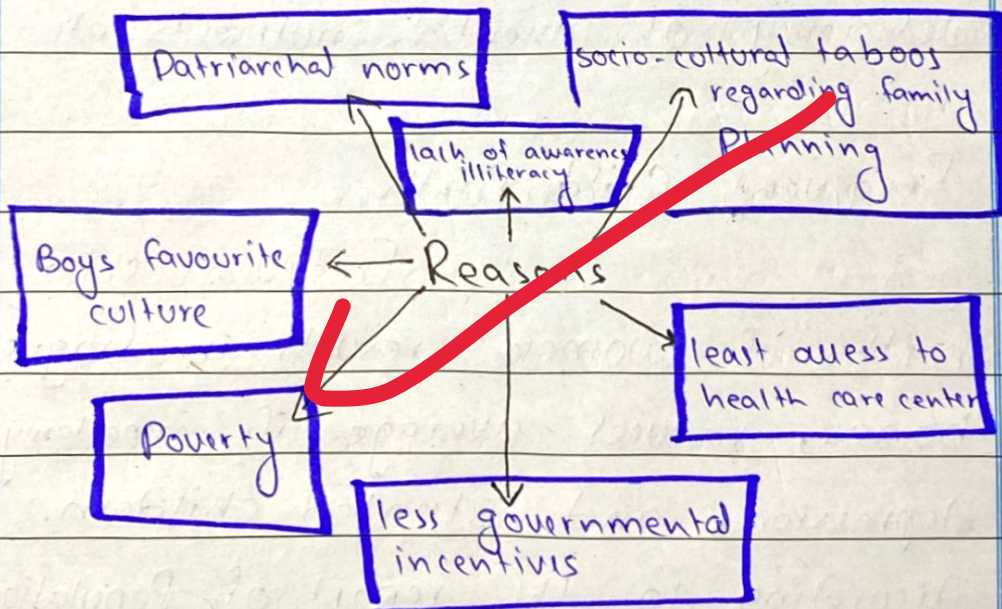 Patriarchal norms
socio-cultural taboos
regarding family
Planning
lack of awarenes
illiteracy
Reasons
Boys favourite
culture
least access to
health care center
Poverty
less governmental
incentives